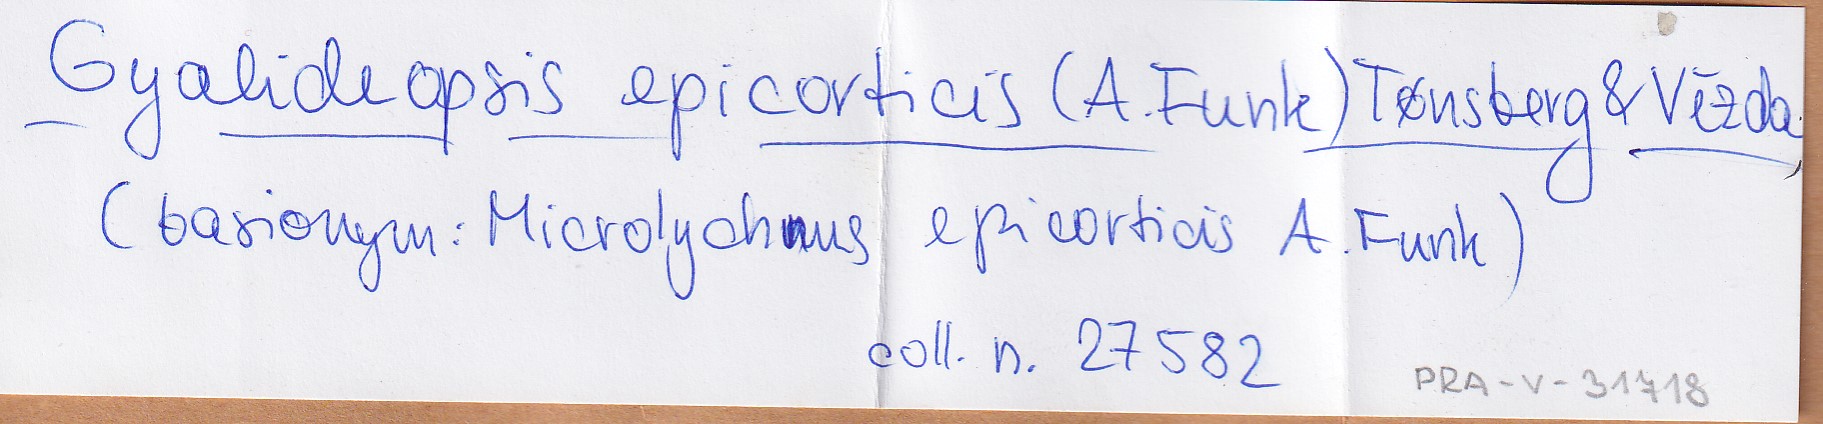 Gyalideopsis epicorticis (A.Funk) Tønsberg & Vězda,
(basionym: Microlychnus epicorticis A.Funk)
coll. n. 27582
PRA-V-31718